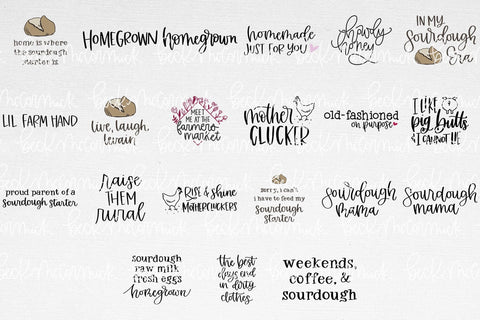 home is where
the sourdough
starter is
HOMEGROWN
homegrown
homemade
JUST FOR YOU
howdy
honey
IN MY
Sourdough
Era
LIL FARM HAND
live, laugh,
levain
MEET
ME AT THE
farmers
market
mother
CLUCKER
old-fashioned
on purpose
I LIKE
pig butts
& I CANNOT LIE
proud parent of a
sourdough starter
raise
THEM
rural
RISE & SHINE
MOTHERCLUCKERS
sorry, i can't
i have to feed my
sourdough
starter
Sourdough
mama
Sourdough
mama
sourdough
raw milk
fresh eggs
homegrown
the best
days end
in dirty
clothes
weekends,
coffee, &
sourdough
beck mccormick